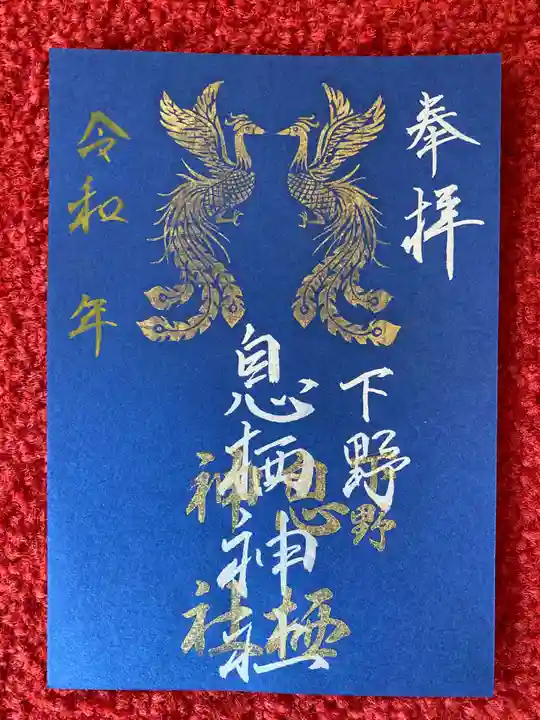 奉拝
下野
息栖神社
下野
息栖
神社
令和 年